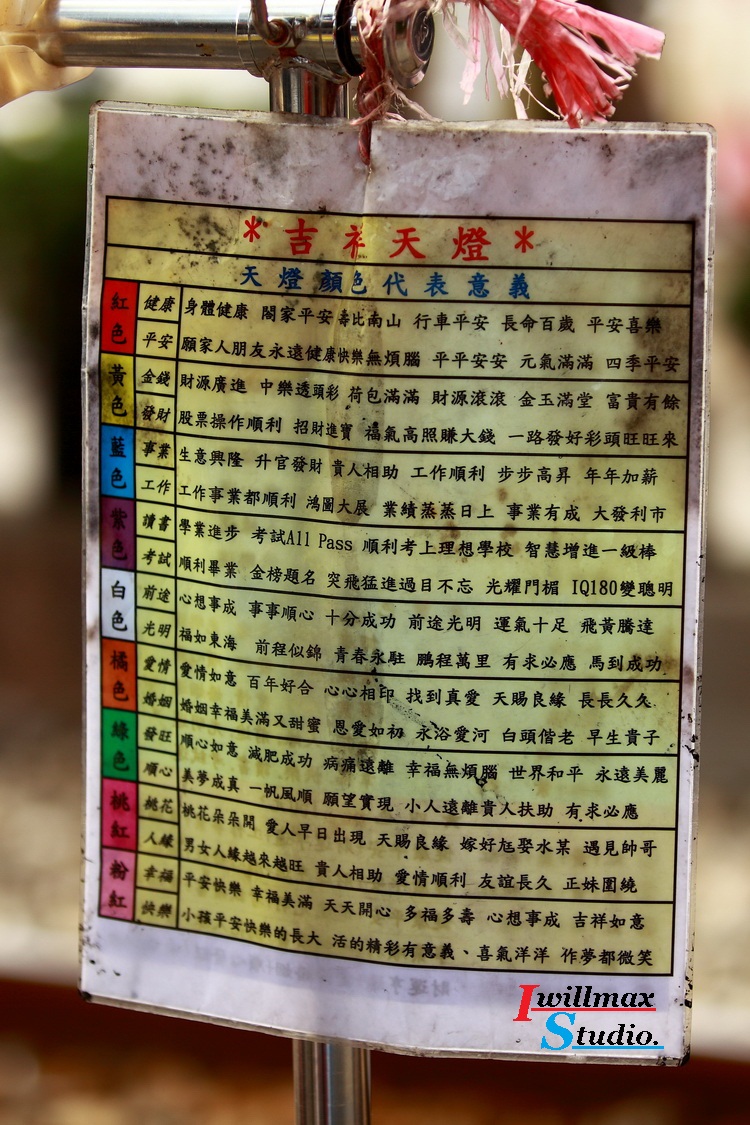 *吉祥天燈*
天燈顏色代表意義
紅色 健康 身體健康 闔家平安壽比南山 行車平安 長命百歲 平安喜樂
平安 願家人朋友永遠健康快樂無煩腦 平平安安 元氣滿滿 四季平安
黃色 金錢 財源廣進 中樂透頭彩 荷包滿滿 財源滾滾 金玉滿堂 富貴有餘
發財 股票操作順利 招財進寶 福氣高照賺大錢 一路發好彩頭旺旺來
藍色 事業 生意興隆 升官發財 貴人相助 工作順利 步步高昇 年年加薪
工作 工作事業都順利 鴻圖大展 業績蒸蒸日上 事業有成 大發利市
紫色 讀書 學業進步 考試All Pass 順利考上理想學校 智慧增進一級棒
考試 順利畢業 金榜題名 突飛猛進過目不忘 光耀門楣 IQ180變聰明
白色 前途 心想事成 事事順心 十分成功 前途光明 運氣十足 飛黃騰達
光明 福如東海 前程似錦 青春永駐 鵬程萬里 有求必應 馬到成功
橘色 愛情 愛情如意 百年好合 心心相印 找到真愛 天賜良緣 長長久久
婚姻 婚姻幸福美滿又甜蜜 恩愛如初 永浴愛河 白頭偕老 早生貴子
綠色 發旺 順心如意 減肥成功 病痛遠離 幸福無煩腦 世界和平 永遠美麗
順心 美夢成真 一帆風順 願望實現 小人遠離貴人扶助 有求必應
桃紅 桃花 桃花朵朵開 愛人早日出現 天賜良緣 嫁好尪娶水某 遇見帥哥
人緣 男女人緣越來越旺 貴人相助 愛情順利 友誼長久 正妹圍繞
粉紅 幸福 平安快樂 幸福美滿 天天開心 多福多壽 心想事成 吉祥如意
快樂 小孩平安快樂的長大 活的精彩有意義、喜氣洋洋 作夢都微笑
Iwillmax
Studio.